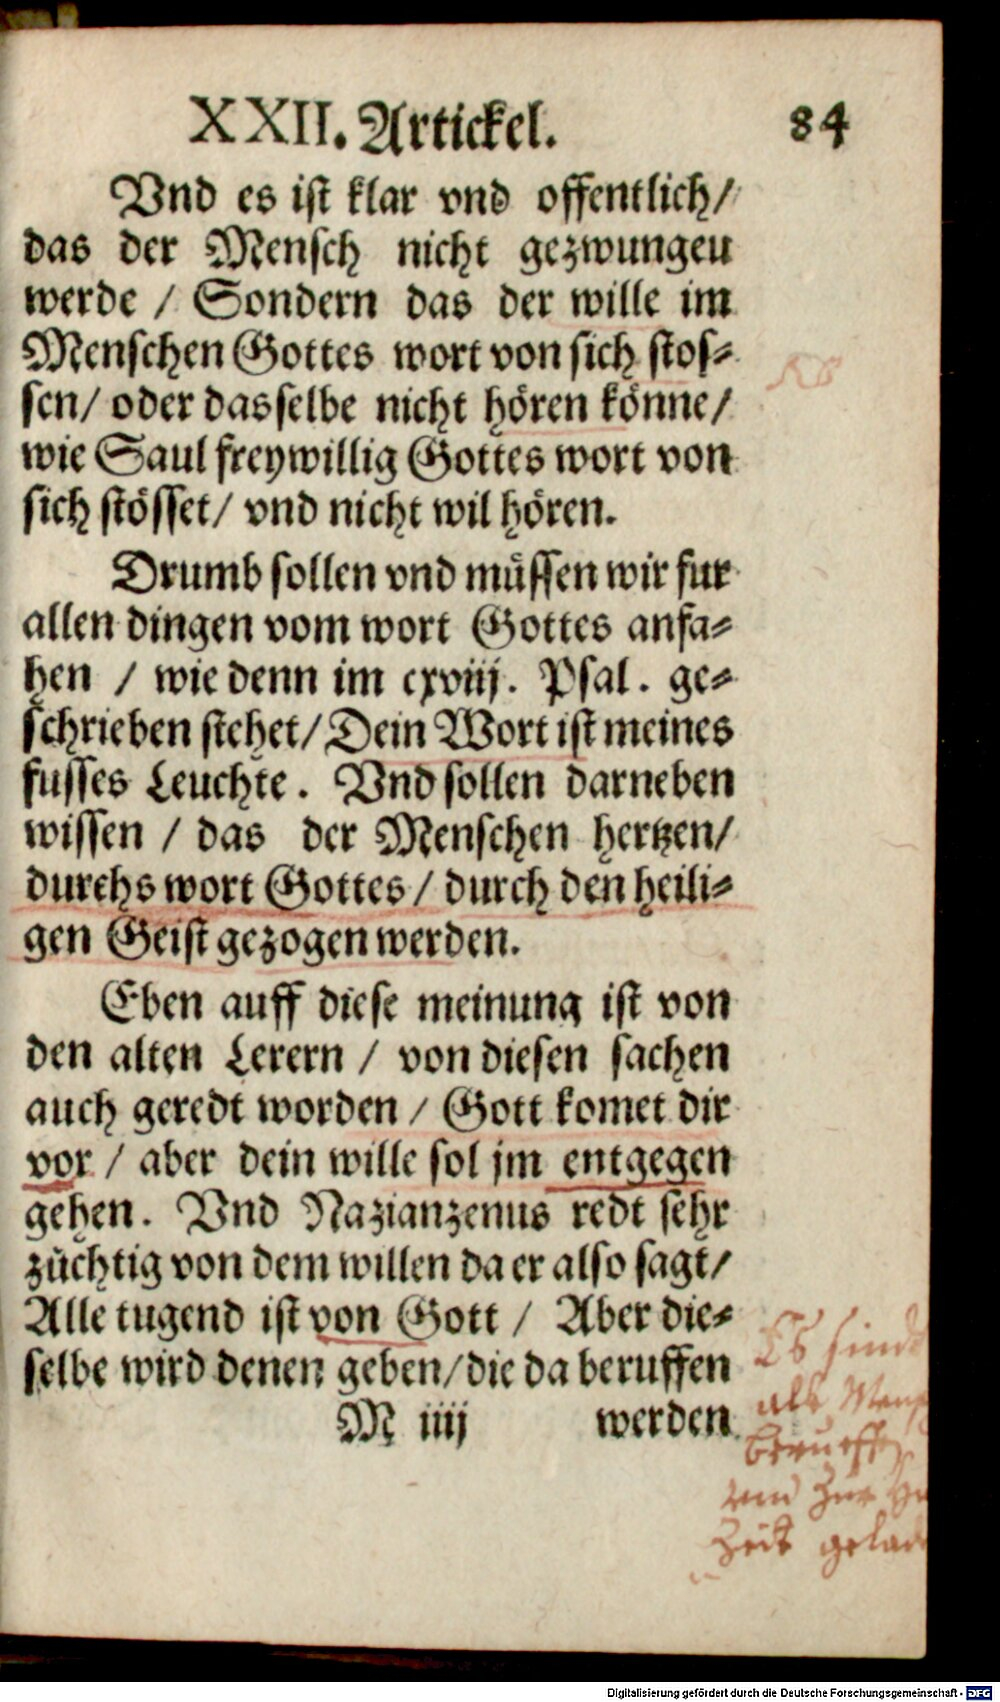 XXII. Artickel. 84
Vnd es ist klar vnd offentlich/
das der Mensch nicht gezwungen
werde / Sondern das der wille im
Menschen Gottes wort von sich stos-
sen/ oder dasselbe nicht hören könne/
wie Saul freywillig Gottes wort von
sich stösset/ vnd nicht wil hören.
Drumb sollen vnd müssen wir fur
allen dingen vom wort Gottes anfa-
hen / wie denn im cxviij. Psal. ge-
schrieben stehet/ Dein Wort ist meines
fusses Leuchte. Vnd sollen darneben
wissen / das der Menschen hertzen/
durchs wort Gottes / durch den heili-
gen Geist gezogen werden.
Eben auff diese meinung ist von
den alten Lerern / von diesen sachen
auch geredt worden / Gott komet dir
vor / aber dein wille sol jm entgegen
gehen. Vnd Nazianzenus redt sehr
züchtig von dem willen da er also sagt/
Alle tugend ist von Gott / Aber die-
selbe wird denen geben/ die da beruffen
M iiij werden
Es sind
alle Mens
beruffen
vnd zur Ho
Zeit gelad
Digitalisierung gefördert durch die Deutsche Forschungsgemeinschaft - DFG